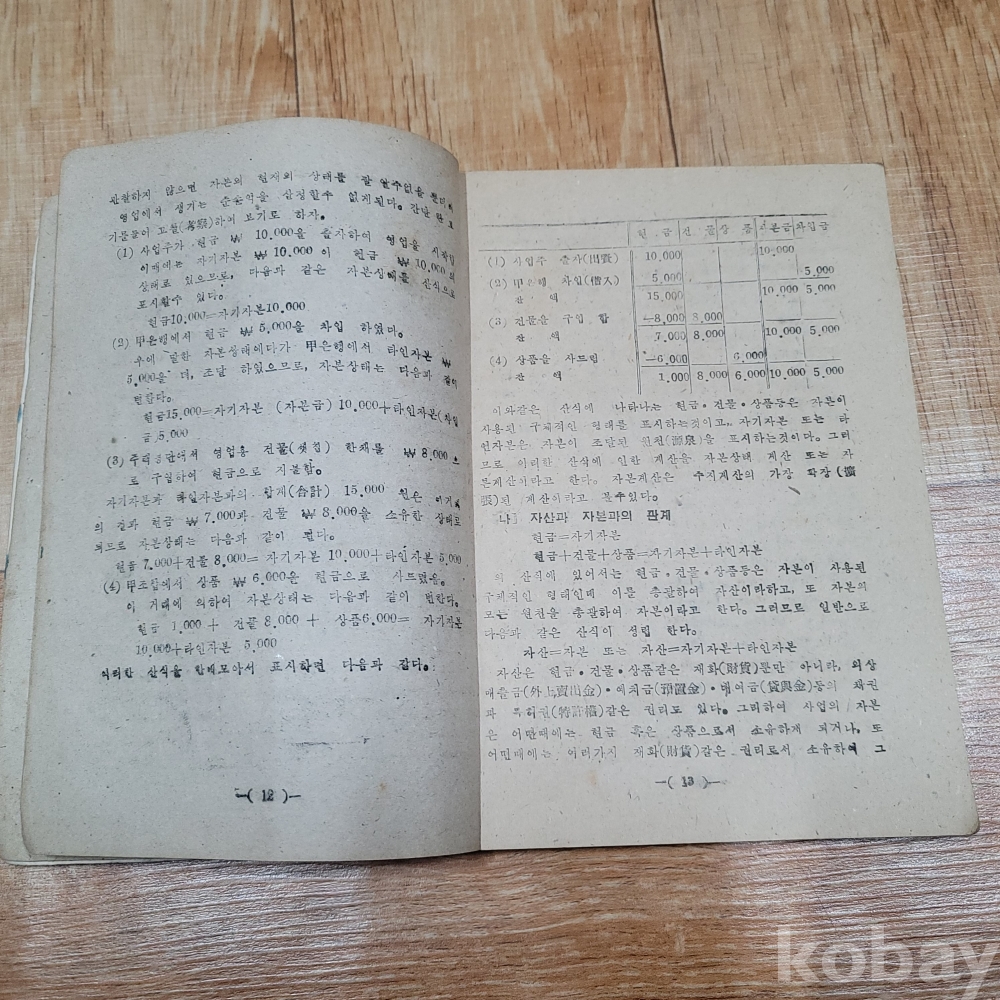 관찰하지 않으면 자본의 현재의 상태를 잘 알수없을 뿐더러
영업에서 생기는 순손익을 산정할수 없게된다. 간단한 보
기를들어 고찰(考察)하여 보기로 하자.
(1) 사업주가 현금 ₩ 10,000을 출자하여 영업을 시작함
이때에는 자기자본 ₩10,000 이 현금 ₩10,000의
상태로 있으므로, 다음과 같은 자본상태를 산식으로
표시할수 있다.
현금10,000=자기자본10,000
(2) 甲은행에서 현금 ₩5,000을 차입 하였다.
우에 말한 자본상태에다가 甲은행에서 타인자본 ₩
5,000을 더, 조달 하였으므로, 자본상태는 다음과 같이
변한다.
현금15,000=자기자본 (자본금) 10,000+타인자본(차입
금)5,000
(3) 영업용 건물(셋집) 한채를 ₩8,000으
로 구입하여 현금으로 지불함.
자기자본과 타인자본과의 합계(合計) 15,000 원은 이거래
의 결과 현금 ₩7,000과 건물 ₩8,000을 소유한 상태로
되므로 자본상태는 다음과 같이 된다.
현금 7,000+건물 8,000= 자기자본 10,000+타인자본 5,000
(4) 甲조합에서 상품 ₩6,000을 현금으로 사드렸음.
이 거래에 의하여 자본상태는 다음과 같이 변한다.
현금 1,000 + 건물 8,000 + 상품6,000= 자기자본
10,000+타인자본 5,000
이러한 산식을 한데모아서 표시하면 다음과 같다.
—( 12 )—
현 금 건 물 상 품 자본금 차입금
(1) 사업주 출자(出資) 10,000 10,000
(2) 甲은행 차입(借入) 5,000 5,000
잔 액 15,000 10,000 5,000
(3) 건물을 구입 함 —8,000 8,000
잔 액 7,000 8,000 10,000 5,000
(4) 상품을 사드림 —6,000 6,000
잔 액 1,000 8,000 6,000 10,000 5,000
이와같은 산식에 나타나는 현금・건물・상품등은 자본이
사용된 구체적인 형태를 표시하는것이고, 자기자본 또는 타
인자본은 자본이 조달된 원천(源泉)을 표시하는것이다. 그러
므로 이러한 산식에 인한 계산을 자본상태 계산 또는 자
본계산이라고 한다. 자본계산은 추적계산의 가장 확장(擴
張)된 계산이라고 볼수있다.
나] 자산과 자본과의 관계
현금=자기자본
현금+건물+상품=자기자본+타인자본
의 산식에 있어서는 현금・건물・상품등은 자본이 사용된
구체적인 형태인데 이를 총괄하여 자산이라하고, 또 자본의
모든 원천을 총괄하여 자본이라고 한다. 그러므로 일반으로
다음과 같은 산식이 성립 한다.
자산=자본 또는 자산=자기자본+타인자본
자산은 현금・건물・상품같은 재화(財貨)뿐만 아니라, 외상
매출금(外上賣出金)・예치금(預置金)・대여금(貸與金)등의 채권
과 특허권(特許權)같은 권리도 있다. 그리하여 사업의 자본
은 어떤때에는 현금 혹은 상품으로서 소유하게 되거나, 또
어떤때에는 여러가지 재화(財貨)같은 권리로서 소유하여 그
—( 13 )—
kobay